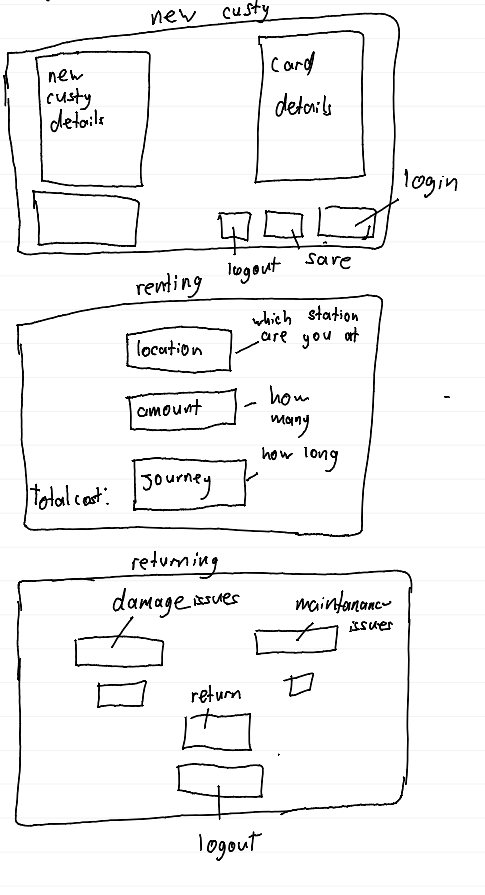 new custy
new
custy
details
card
details
login
logout
save
renting
location
which station
are you at
amount
how
many
Journey
how long
total cost:
returning
damage issues
maintanance
issues
return
logout